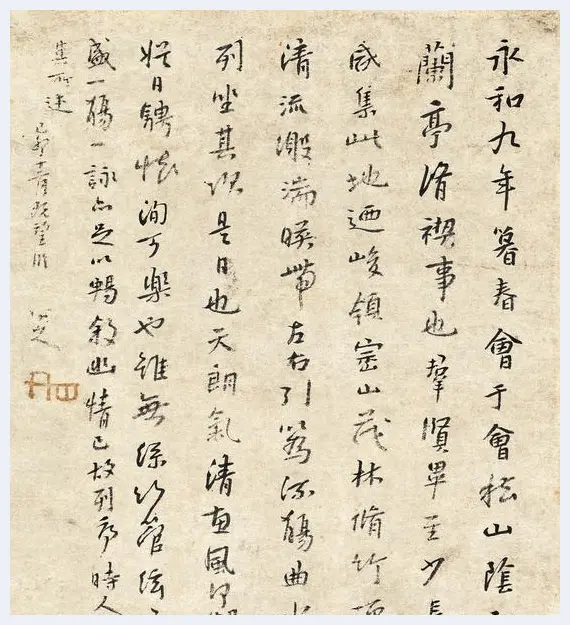 永和九年暮春會于會稽山陰
蘭亭脩禊事也羣賢畢至少長
咸集此地迺峻領崇山茂林脩竹
清流激湍暎帶左右引以為流觴曲水
列坐其次是日也天朗氣清惠風和
娛目騁懷洵可樂也雖無絲竹管絃
盛一觴一詠亦足以暢敘幽情已故列序時人
其所述
己卯既望
八大山人